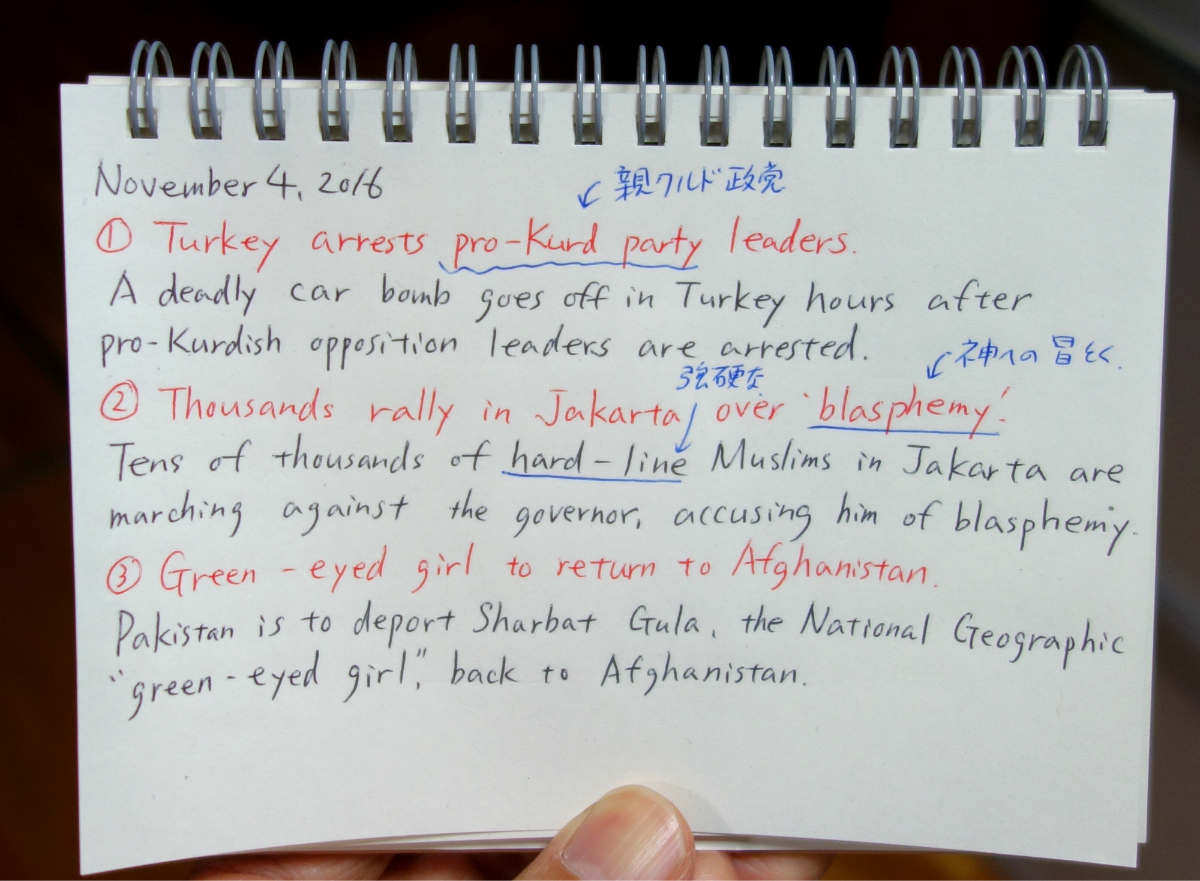 November 4, 2016
親クルド政党
① Turkey arrests pro-Kurd party leaders.
A deadly car bomb goes off in Turkey hours after
pro-Kurdish opposition leaders are arrested.
神への冒とく.
強硬な
② Thousands rally in Jakarta over 'blasphemy'.
Tens of thousands of hard-line Muslims in Jakarta are
marching against the governor, accusing him of blasphemy.
③ Green-eyed girl to return to Afghanistan.
Pakistan is to deport Sharbat Gula, the National Geographic
"green-eyed girl," back to Afghanistan.